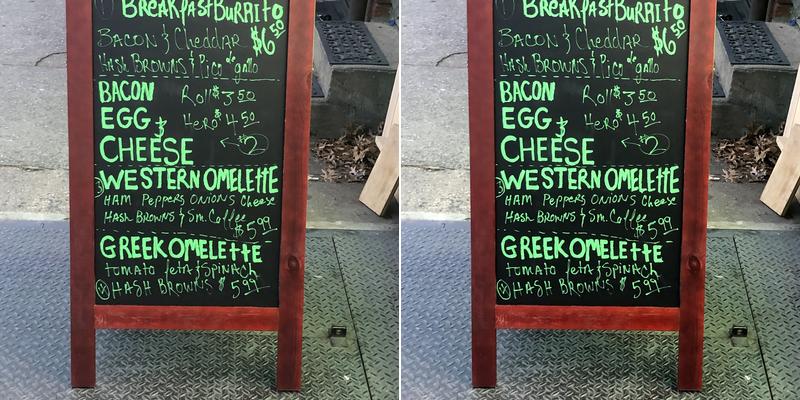 Breakfast Burrito
Bacon & Cheddar $6.50
Hash Browns & Pico de gallo
BACON Roll $3.50
EGG & Hero $4.50
CHEESE $2
WESTERN OMELETTE
HAM Peppers ONIONS Cheese
HASH BROWNS & Sm. Coffee
$5.99
GREEK OMELETTE
TOMATO feta & SPINACH
HASH BROWNS $5.99
Breakfast Burrito
Bacon & Cheddar $6.50
Hash Browns & Pico de gallo
BACON Roll $3.50
EGG & Hero $4.50
CHEESE $2
WESTERN OMELETTE
HAM Peppers ONIONS Cheese
HASH BROWNS & Sm. Coffee
$5.99
GREEK OMELETTE
TOMATO feta & SPINACH
HASH BROWNS $5.99